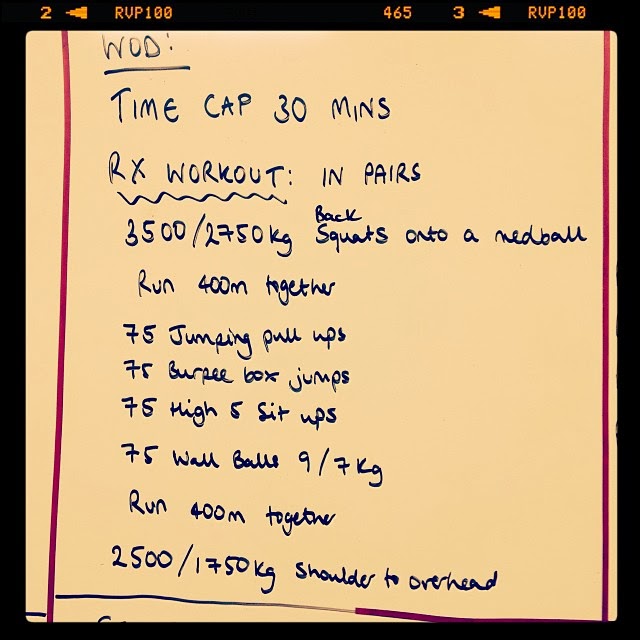 2 RVP100 465 3 RVP100
WOD:
TIME CAP 30 MINS
RX WORKOUT: IN PAIRS
3500/2750kg Back Squats onto a medball
Run 400m together
75 Jumping pull ups
75 Burpee box jumps
75 High 5 Sit ups
75 Wall Balls 9/7kg
Run 400m together
2500/1750kg shoulder to overhead